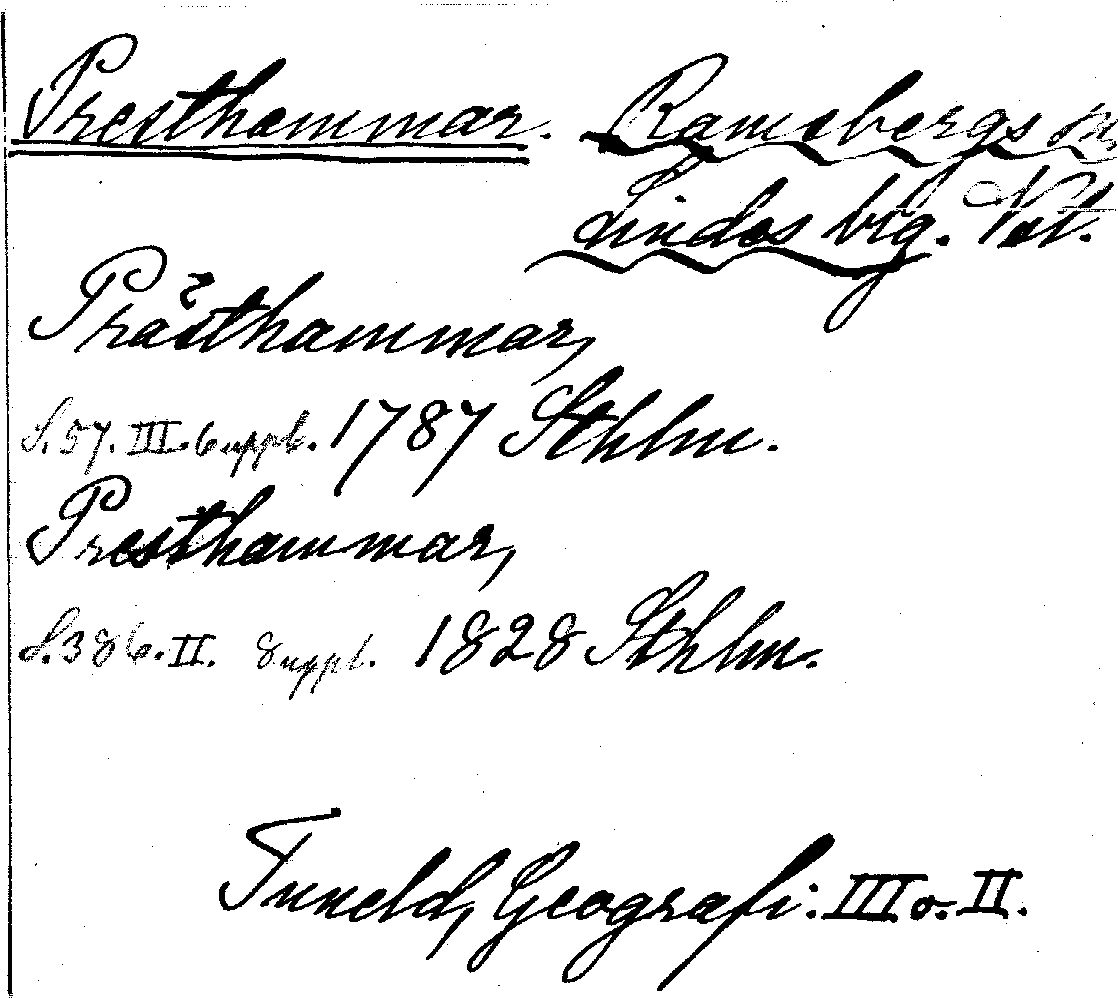 Presthammar. Ramsbergs sn.
Lindes brg. Vstl.
Prästhammar,
S. 57. III. Suppl. 1787 Sthlm.
Presthammar,
S. 386. II. Suppl. 1828 Sthlm.
Tuneld, Geografi: III o. II.